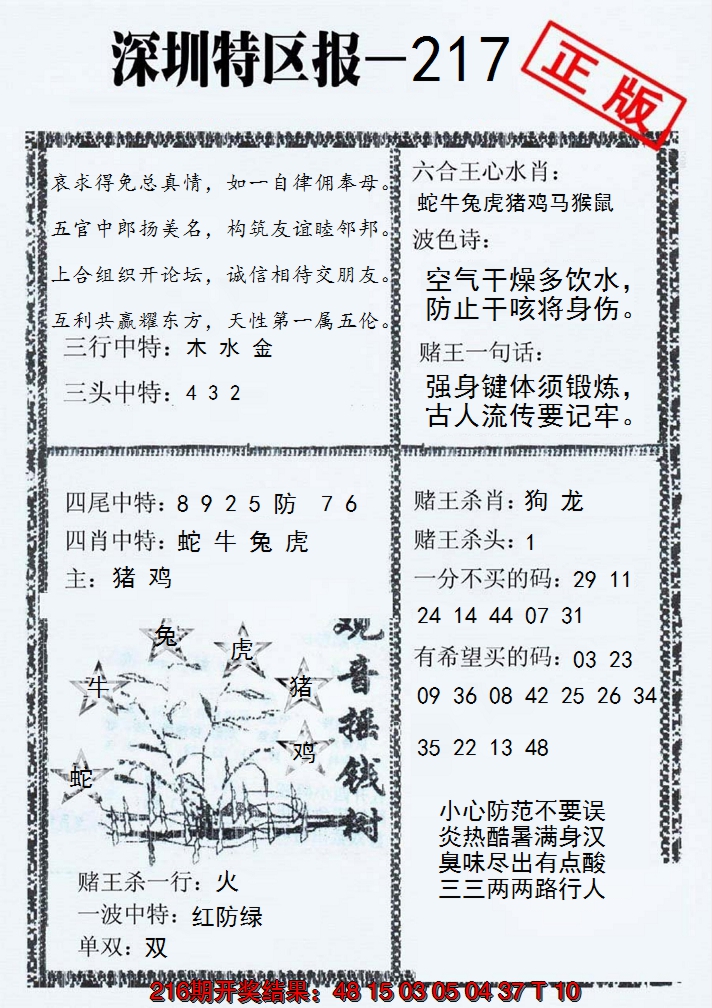 深圳特区报—217
正版
哀求得免总真情，如一自律佣奉母。
五官中郎扬美名，构筑友谊睦邻邦。
上合组织开论坛，诚信相待交朋友。
互利共赢耀东方，天性第一属五伦。
三行中特：木 水 金
三头中特：4 3 2
六合王心水肖：
蛇牛兔虎猪鸡马猴鼠
波色诗：
空气干燥多饮水，
防止干咳将身伤。
赌王一句话：
强身键体须锻炼，
古人流传要记牢。
四尾中特：8 9 2 5 防 7 6
四肖中特：蛇 牛 兔 虎
主：猪 鸡
兔
虎
牛
猪
鸡
蛇
观音摇钱树
赌王杀一行：火
一波中特：红防绿
单双：双
赌王杀肖：狗 龙
赌王杀头：1
一分不买的码：29 11
24 14 44 07 31
有希望买的码：03 23
09 36 08 42 25 26 34
35 22 13 48
小心防范不要误
炎热酷暑满身汉
臭味尽出有点酸
三三两两路行人
216期开奖结果：48 15 03 05 04 37 T 10